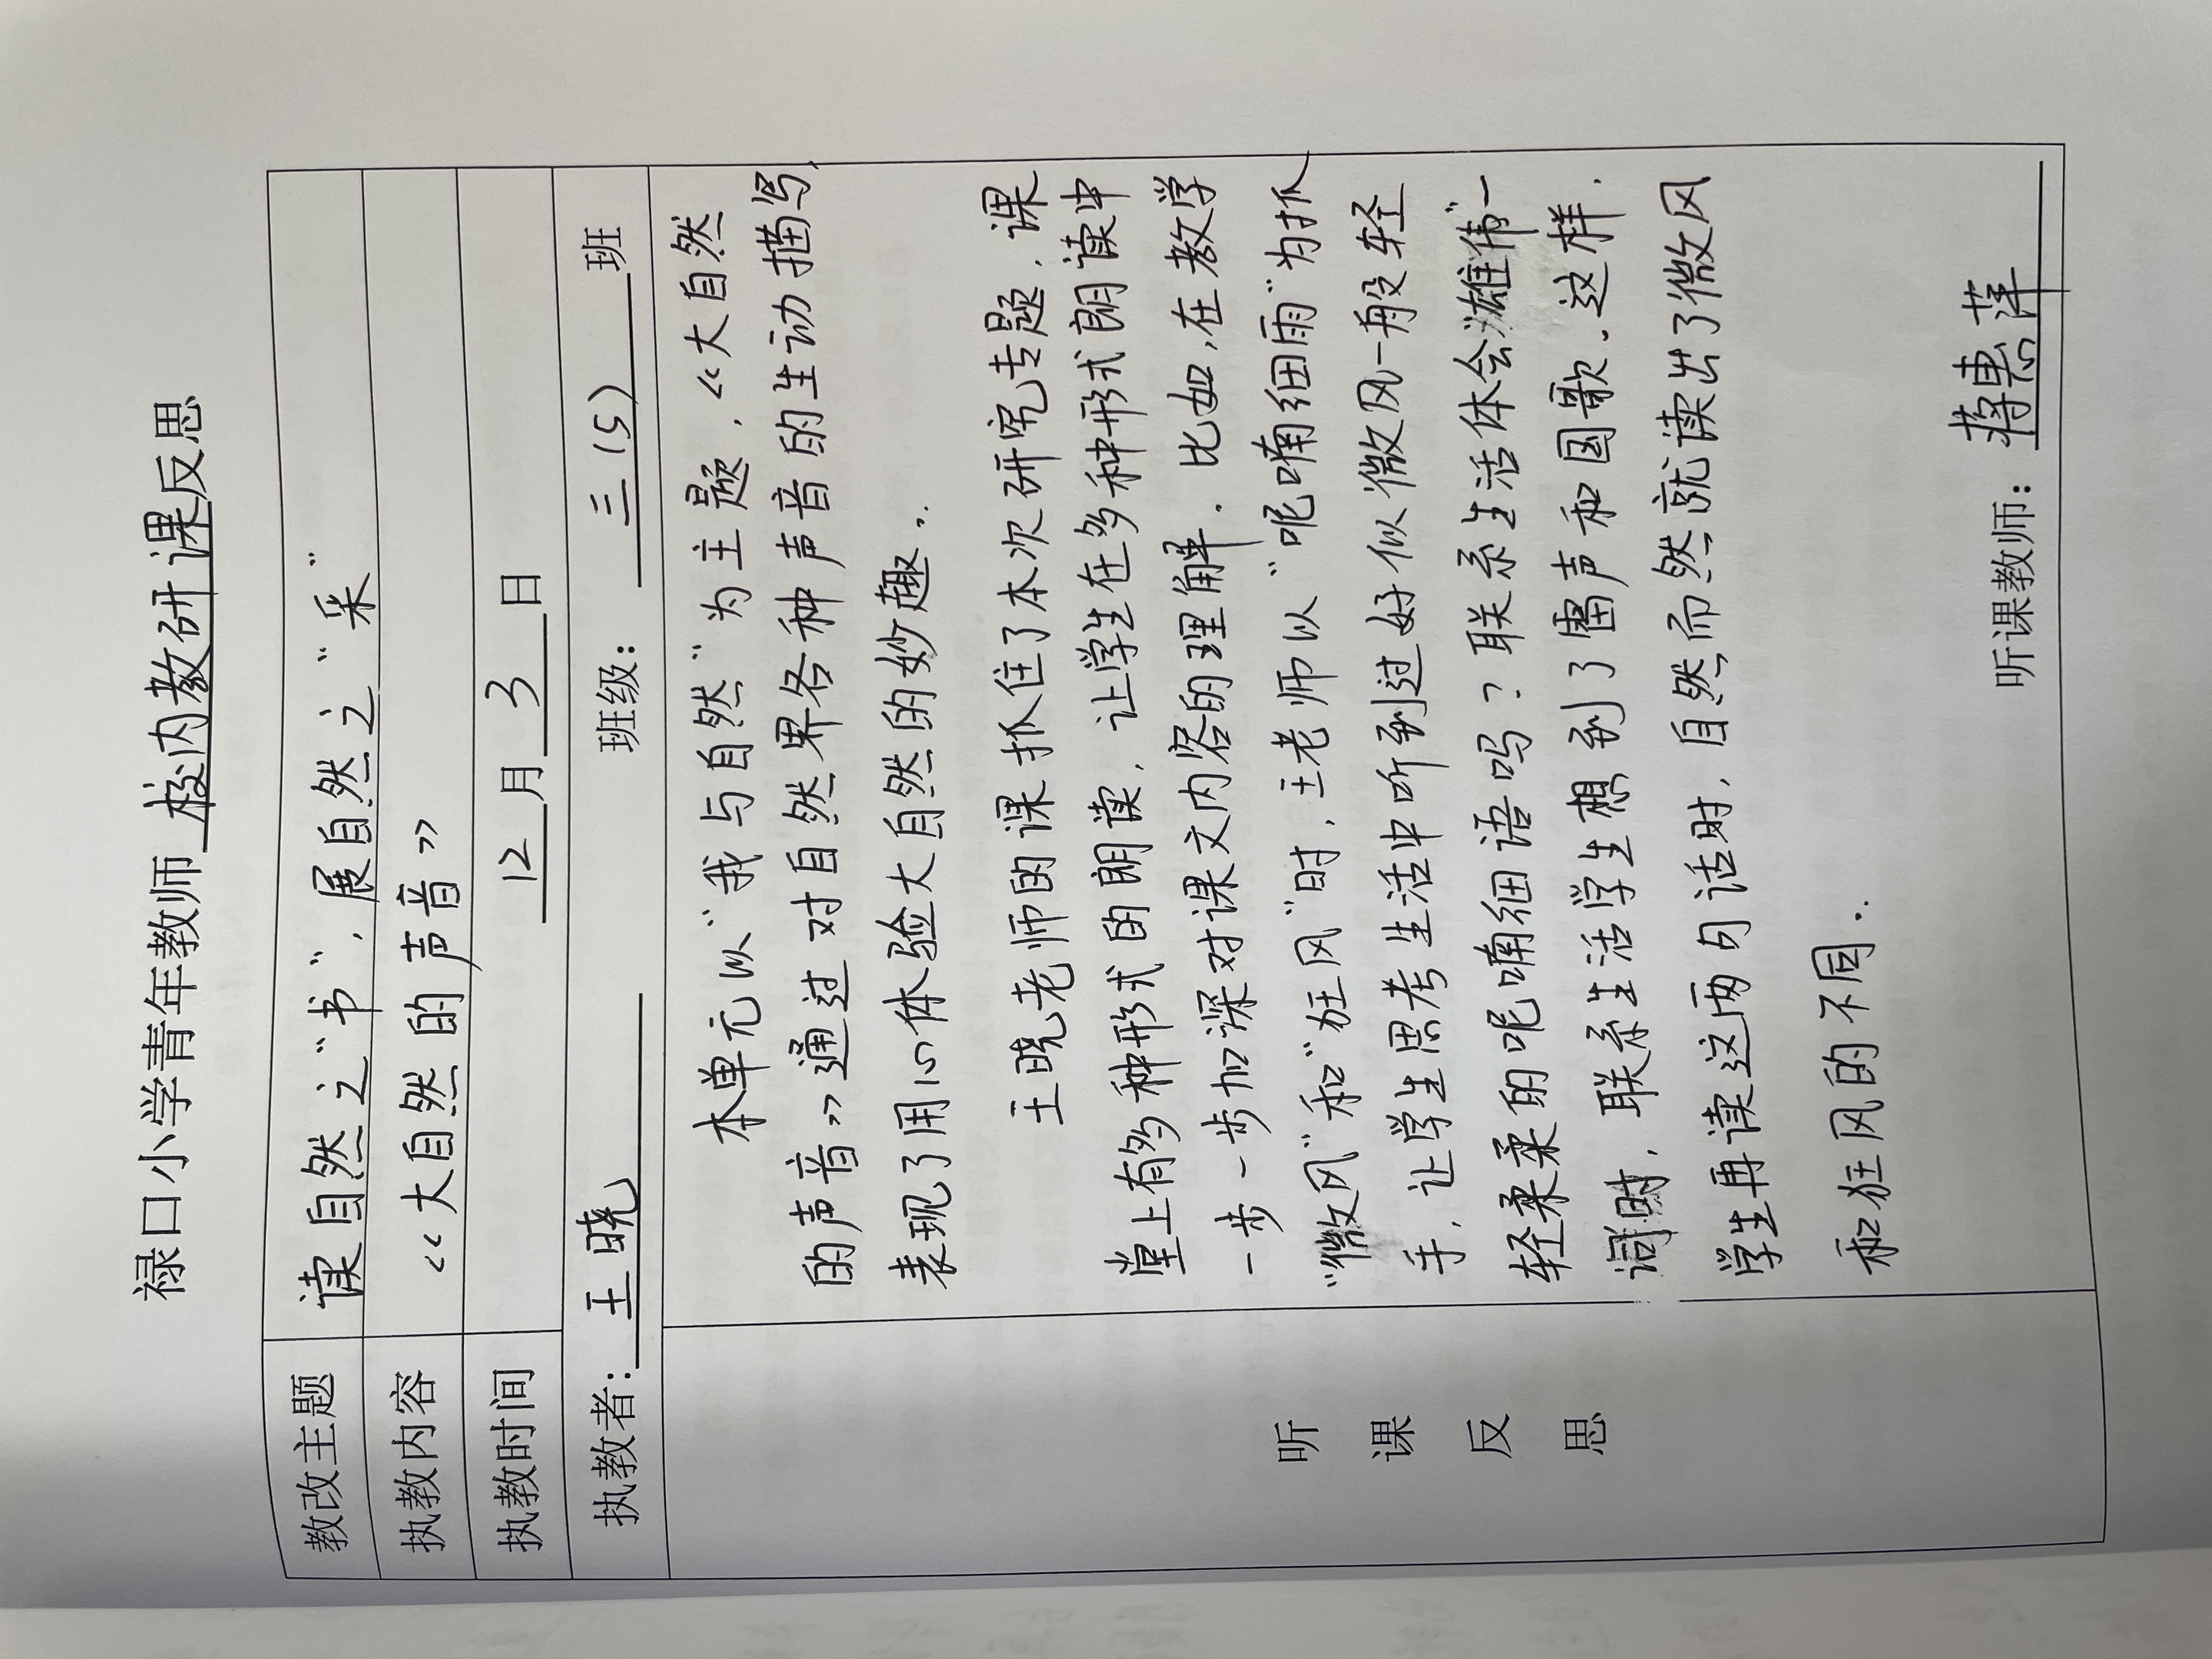 禄口小学青年教师 校内教研课反思
教改主题 读自然之“书”，展自然之“采”
执教内容 《大自然的声音》
执教时间 12月3日
执教者：王晓 班级：三（5）班
听课反思
本单元以“我与自然”为主题，《大自然
的声音》通过对自然界各种声音的生动描写，
表现了用心体验大自然的妙趣。
王晓老师的课抓住了本次研究专题，课
堂上有多种形式的朗读，让学生在多种形式朗读中
一步一步加深对课文内容的理解。比如，在教学
“微风”和“狂风”时，王老师以“呢喃细雨”为抓
手，让学生思考生活中听到过好似微风一般轻
轻柔柔的呢喃细语吗？联系生活体会“雄伟”一
词时，联系生活学生想到了雷声和国歌。这样，
学生再读这两句话时，自然而然就读出了微风
和狂风的不同。
听课教师：蒋惠萍